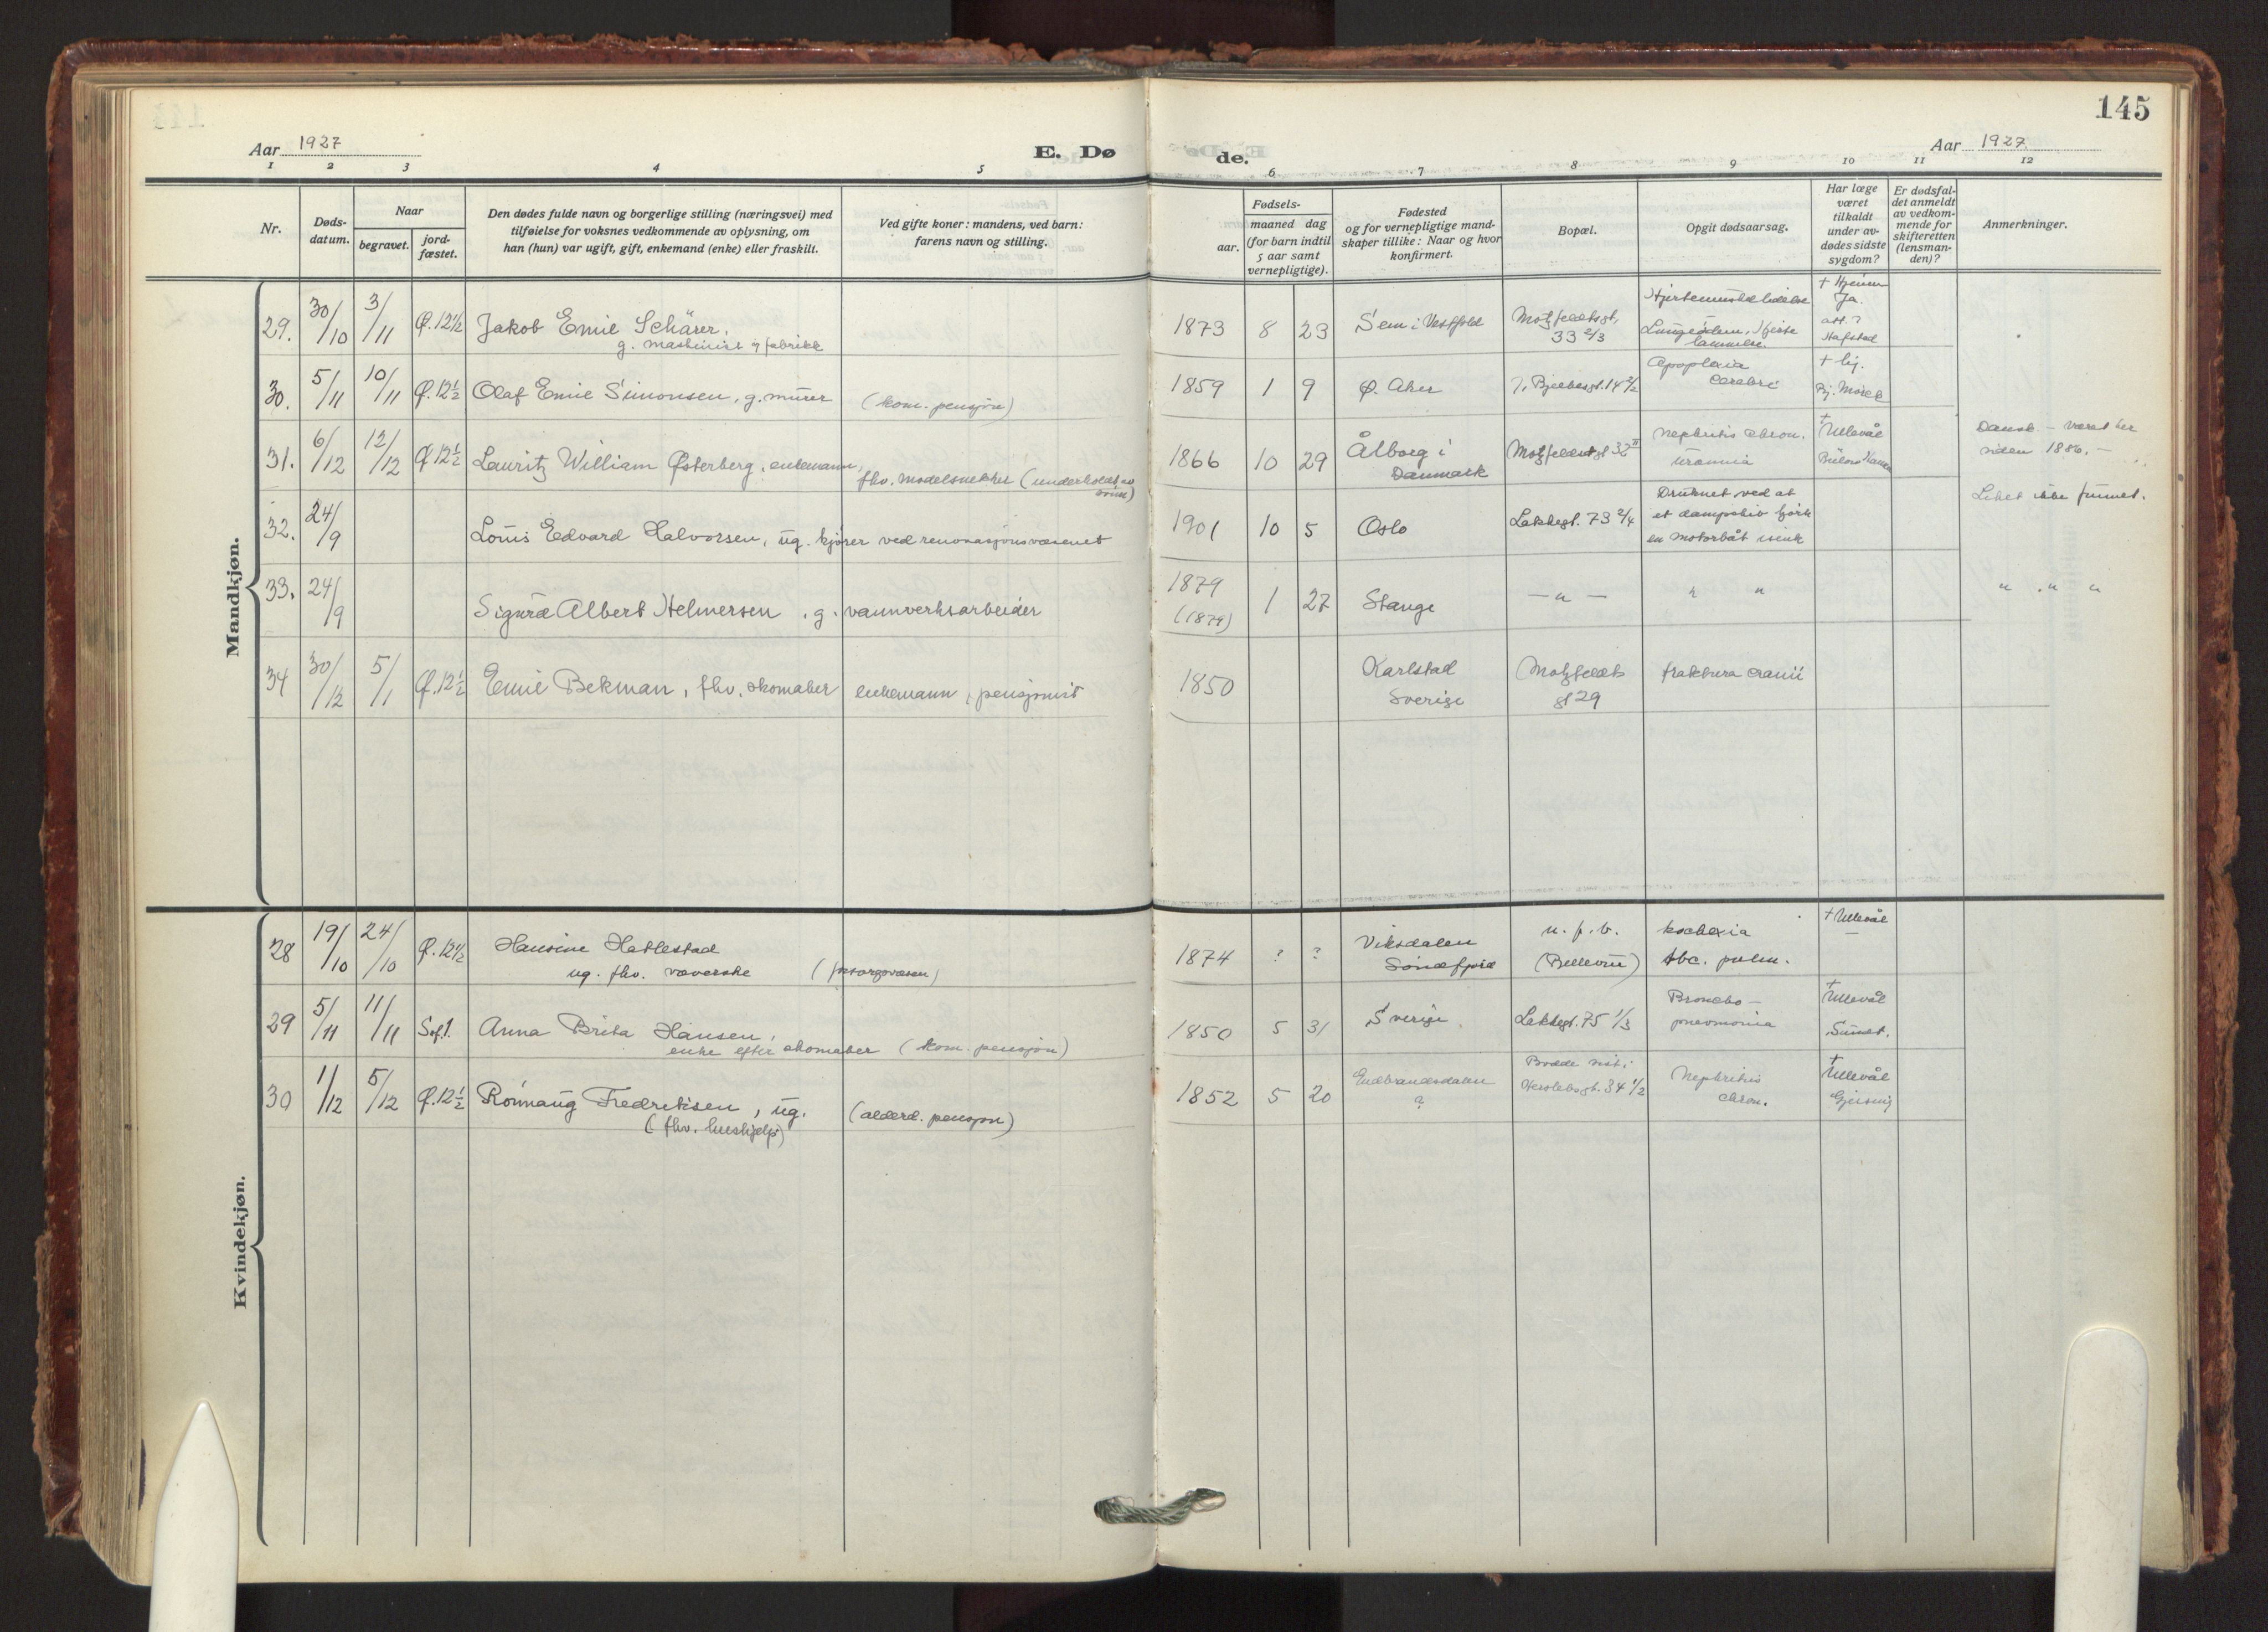 145
Aar 1927
E. Dø
de.
Aar 1927
1 2 3 4 5 6 7 8 9 10 11 12
Nr.
Døds-
datum.
Naar
begravet.
jord-
fæstet.
Den dødes fulde navn og borgerlige stilling (næringsvei) med
tilføielse for voksnes vedkommende av oplysning, om
han (hun) var ugift, gift, enkemand (enke) eller fraskilt.
Ved gifte koner: mandens, ved barn:
farens navn og stilling.
Fødsels-
aar.
maaned dag
(for barn indtil
5 aar samt
vernepligtige).
Fødested
og for vernepligtige mand-
skaper tillike: Naar og hvor
konfirmert.
Bopæl.
Opgit dødsaarsag.
Har læge
været
tilkaldt
under av-
dødes sidste
sygdom?
Er dødsfal-
det anmeldt
av vedkom-
mende for
skifteretten
(lensman-
den)?
Anmerkninger.
Mandkjøn.
29. 30/10 3/11 Ø. 12 1/2 Jakob Emil Schärer.
g. maskinist i fabrikk
1873 8 23 Sem i Vestfold
Motzfeldtsgt.
33 2/3
Hjertemuskellidelse
Lungeödem, Hjerte
lammelse.
+ Hjemme
Ja.
att. ?
Hafstad
30. 5/11 10/11 Ø. 12 1/2 Olaf Emil Simonsen, g. murer (kom. pensjon)
1859 1 9 Ø. Aker
14 2/2
Apoplexia
cerebri
Bj. Morck
31. 6/12 12/12 Ø 12 1/2 Lauritz William Østerberg, enkemann,
fhv. modelsnekker (underholdt av
sønn)
1866 10 29 Ålborg i
Danmark
Motzfeldtsgt 32 II
Nephritis chron.
Uræmia
+ Ullevål
Bülow Hansen
Dansk - været her
siden 1886. -
32. 24/9 Louis Edvard Halvorsen, ug. kjører ved renovasjonsvæsenet
1901 10 5 Oslo Lakkegt. 73 2/4
Druknet ved at
et dampskib kjørte
en motorbåt isenk
Liket ikke funnet.
33. 24/9 Sigurd Albert Helmersen, g. vannverksarbeider
1879
(1879)
1 27 Stange — " — " " " " "
34 30/12 5/1 Ø. 12 1/2 Emil Bekman, fhv. skomaker enkemann, pensjonist
1850 Karlstad
Sverige
Motzfeldts
gt 29
fraktura cranii
Kvindekjøn.
28 19/10 24/10 Ø. 12 1/2 Hansine Hatlestad
ug. fhv. væverske (forsorgsvæsen)
1874 ? ? Viksdalen
Søndfjord
u. f. b.
(Bellevue)
kachexia
tbc. pulm.
+ Ullevål
—
29 5/11 11/11 Sof. 1. Anna Brita Hansen,
enke efter skomaker (kom. pensjon)
1850 5 31 Sverige Lakkegt. 75 1/3
Broncho-
pneumonia
+ Ullevål
Sundt.
30 1/12 5/12 Ø. 12 1/2 Rönnaug Fredriksen, ug. (alderd. pensjon)
(fhv. hushjelp)
1852 5 20 Gudbrandsdalen
?
Bodde sist i
Herslebsgt. 34 1/2
Nephritis
chron.
+ Ullevål